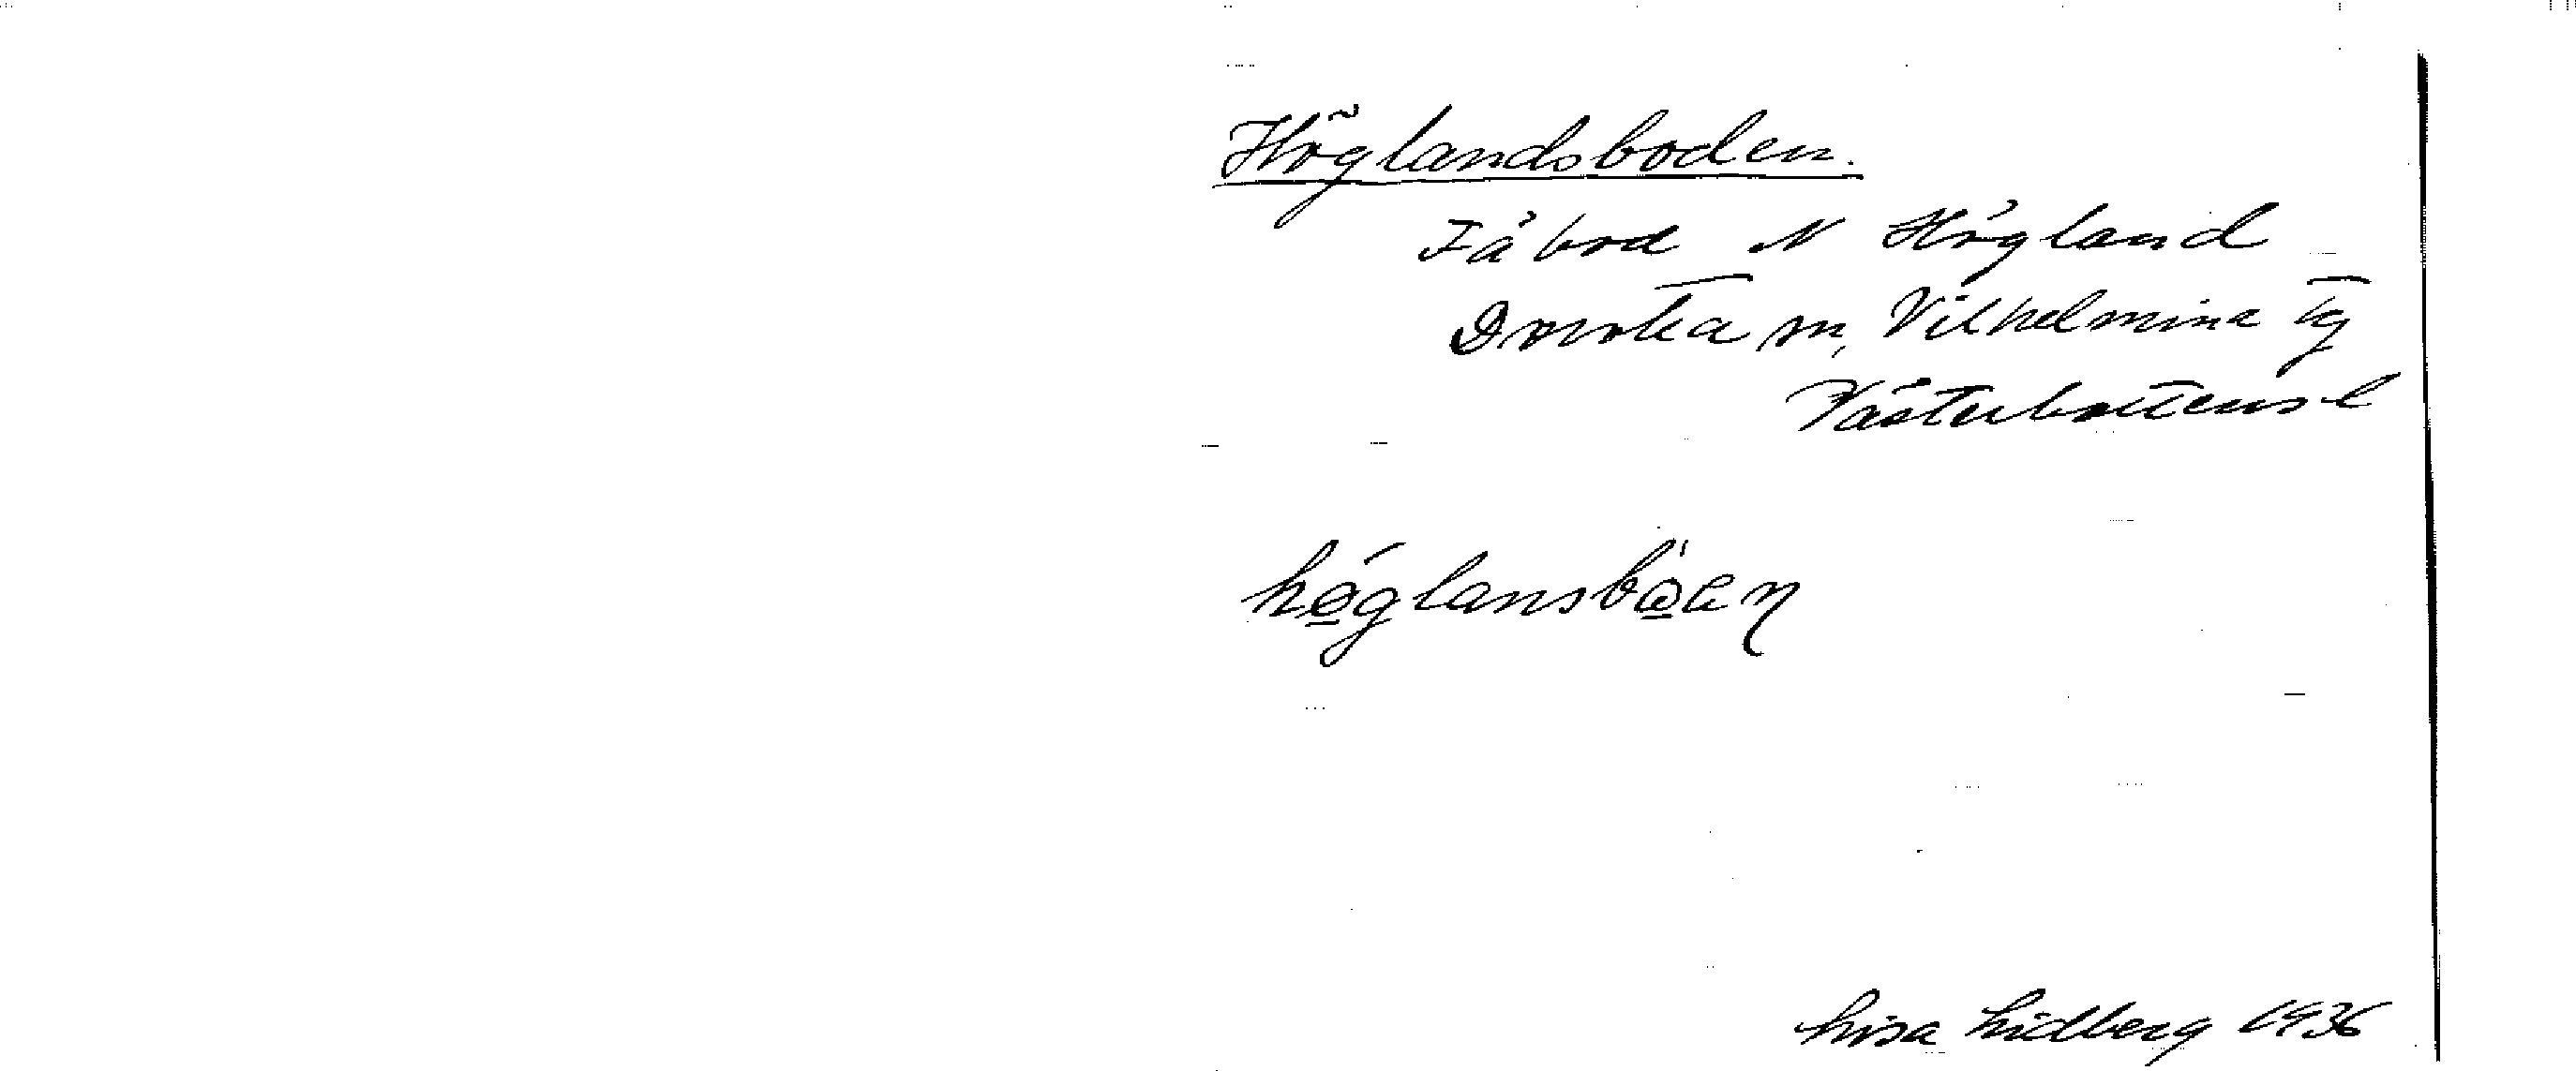 Höglandsboden.
Fäbod N Högland
Dorotea sn, Vilhelmina tg
Västerbottens l
Lisa Lidberg 1936